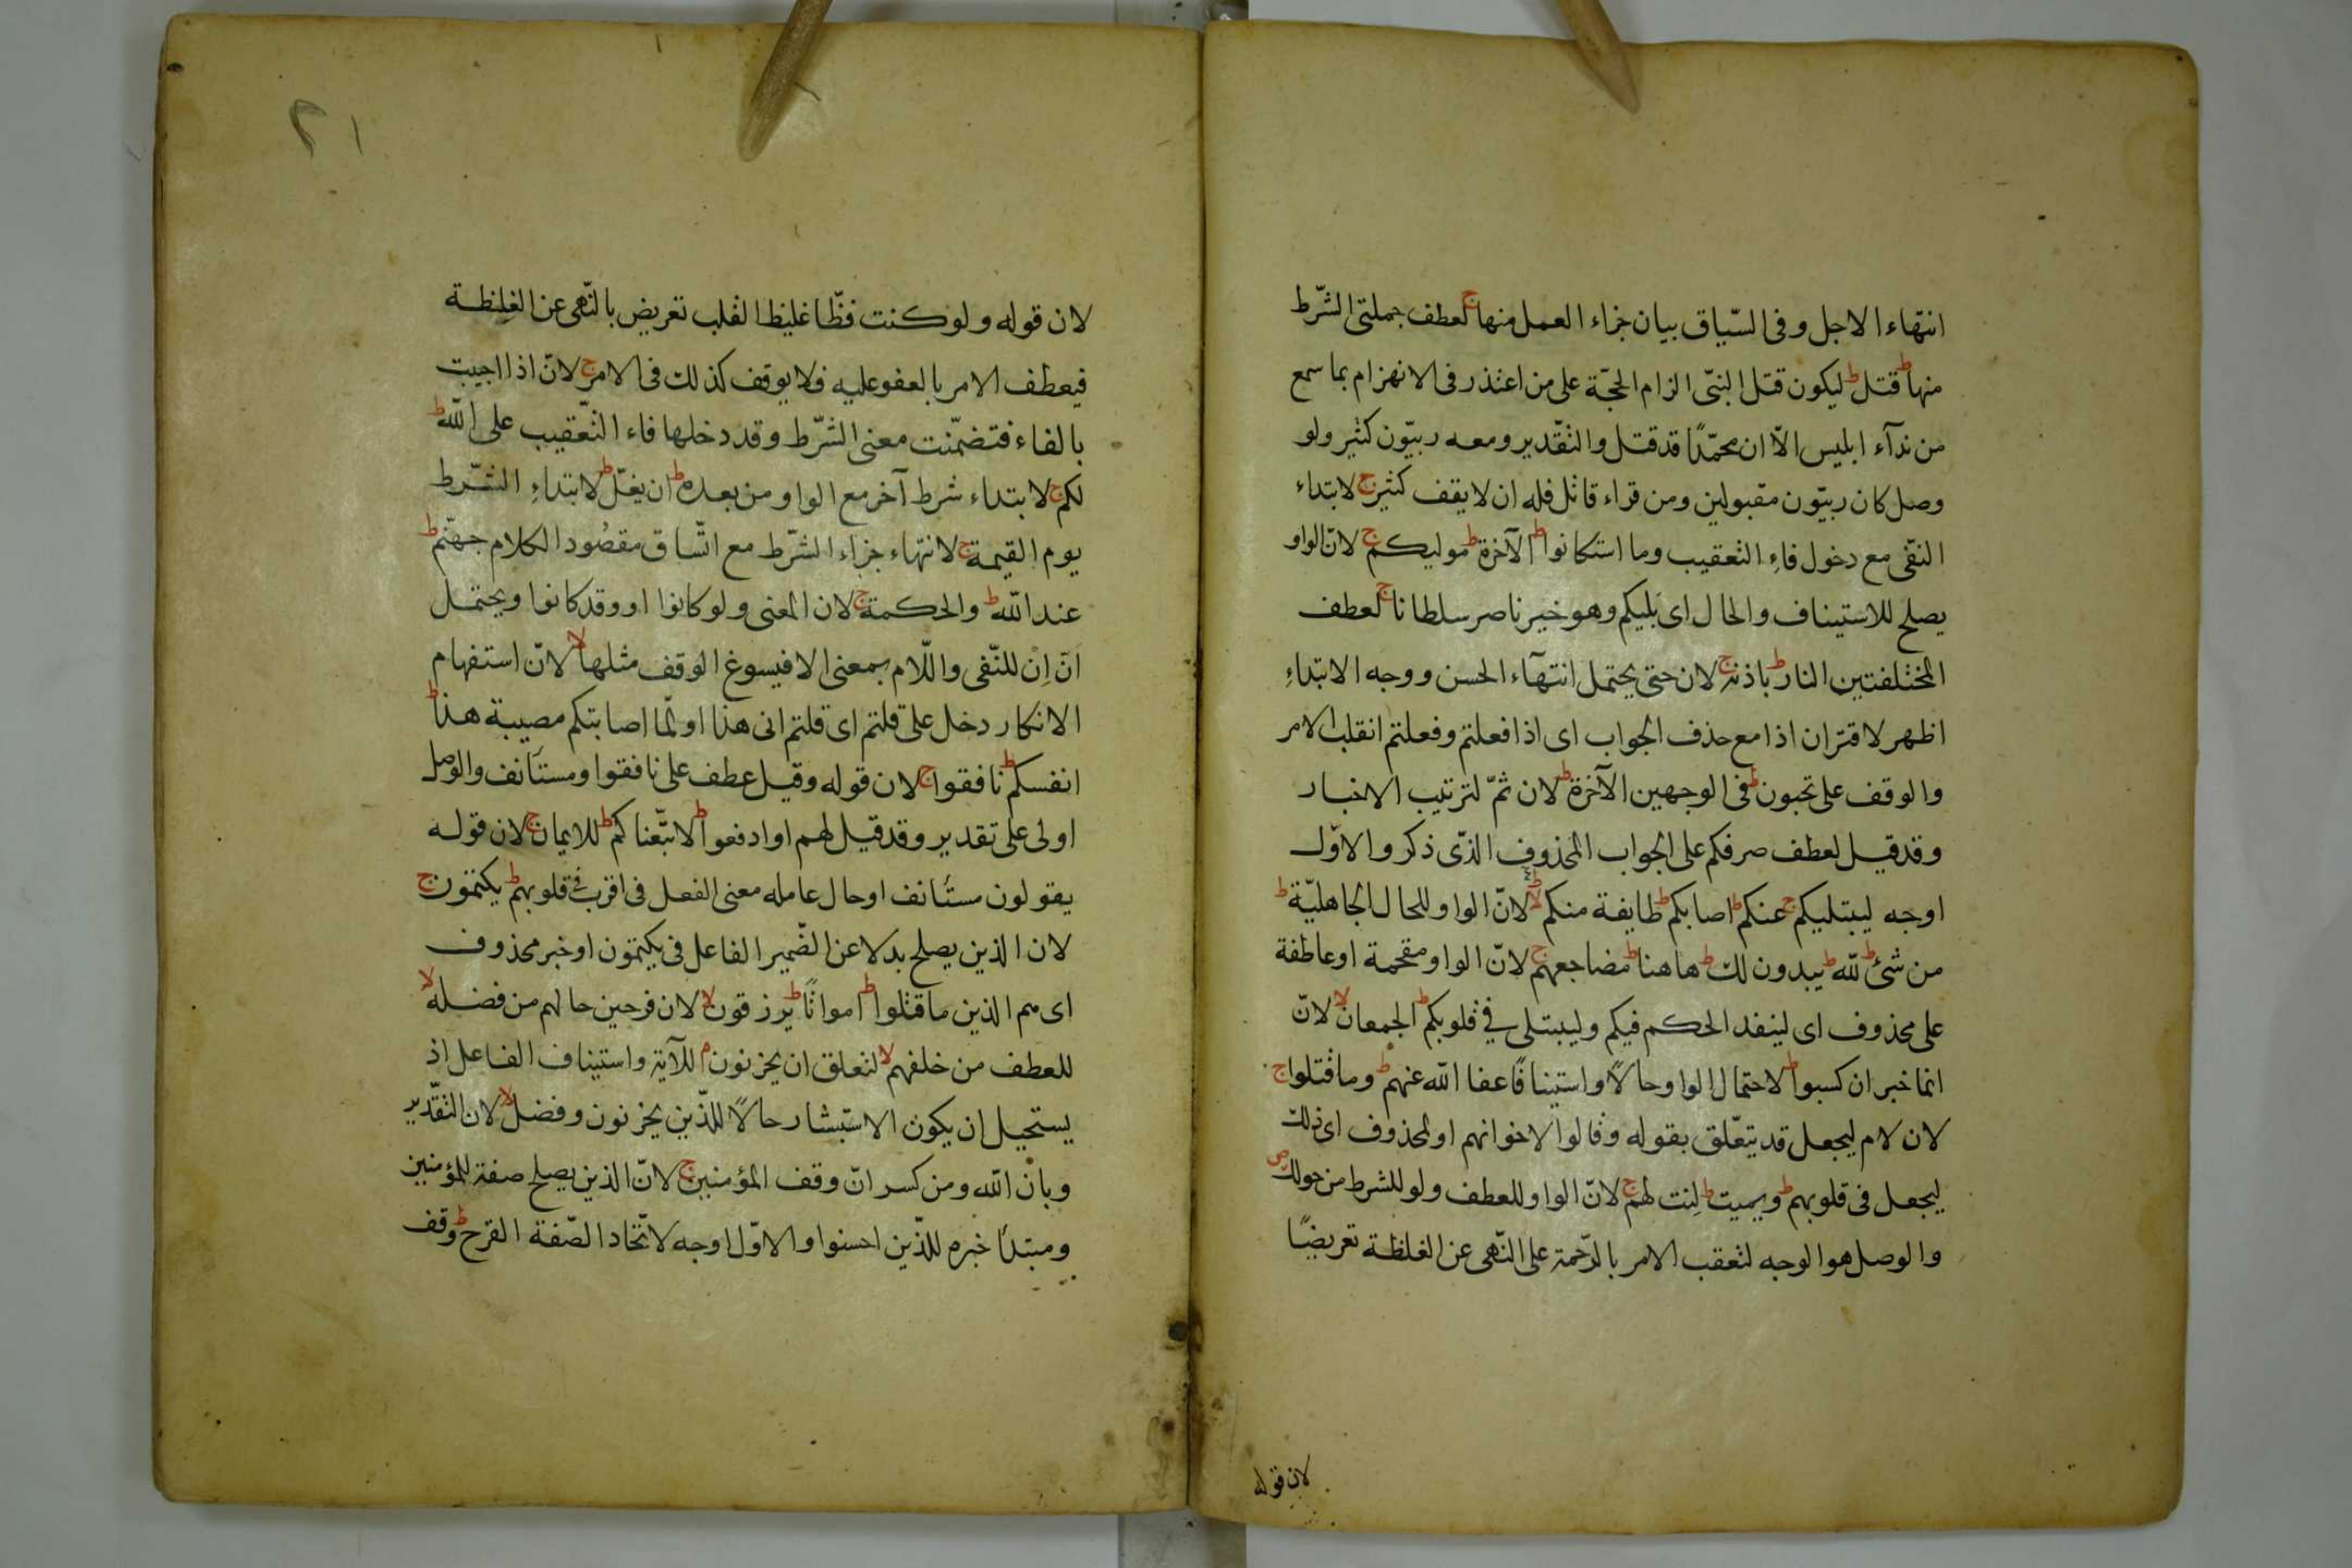 انتهاء الاجل وفى السّياق بيان جزاء العمل منها ج لعطف جملتى الشّرط
منها ط قتل ط ليكون قتل النبىّ الزام الحجّة على من اعتذر فى الانهزام بما سمع
من ندآء ابليس الاّ ان محمّدًا قد قتل والتقدير ومعه ربيّون كثير ولو
وصل كان ربيّون مقبولين ومن قراء قاتل فله ان لا يقف كثير ج لابتداء
النفى مع دخول فاءِ التعقيب وما استكانوا ط الآخرة ط موليكم ج لانّ الواو
يصلح للاستيناف والحال اى يليكم وهو خير ناصر سلطانا ج لعطف
المختلفتين النار ط باذنه ج لان حتى يحتمل انتهآء الحسن ووجه الابتداءِ
اظهر لاقتران اذا مع حذف الجواب اى اذا فعلتم وفعلتم انقلب الامر
والوقف على تحبون ط فى الوجهين الآخرة ط لان ثمّ لترتيب الاخبار
وقد قيل لعطف صرفكم على الجواب المحذوف الذّى ذكر والاوّل
اوجه ليبتليكم ج عنكم ط اصابكم ط طايفة منكم لا لانّ الواو للحال الجاهليّة ط
من شئ ط لله ط يبدون لك ط هاهنا ط مضاجعهم ج لانّ الواو مقحمة او عاطفة
على محذوف اى لينفد الحكم فيكم وليبتلى في قلوبكم ط الجمعان لا لانّ
انما خبر ان كسبوا ط لاحتمال الواو حالًا واستينافًا عفا الله عنهم ط وما قتلوا ج
لان لام ليجعل قد يتعّلق بقوله وقالوا لاخوانهم او لمحذوف اى ذلك
ليجعل فى قلوبهم ط ويميت ط لِنت لهم ج لانّ الواو للعطف ولو للشرط من حولك ص
والوصل هو الوجه لتعقب الامر بالرّحمة على النّهى عن الغلظة تعريضًا
لان قوله
٢١
لان قوله ولو كنت فظّا غليظ القلب تعريض بالنّهى عن الغِلظة
فيعطف الامر بالعفو عليه فلا يوقف كذلك فى الامر ج لانّ اذا اجيبت
بالفاء فتضمّنت معنى الشّرط وقد دخلها فاء التّعقيب على الله ط
لكم ج لابتداء شرط آخر مع الواو من بعده ط ان يغلّ ط لابتداءِ الشّرط
يوم القيمة ج لانتهاء جزاء الشّرط مع اتّساق مقصُود الكلام جهنّم ط
عند الله ط والحكمة ج لان المعنى ولو كانوا او وقد كانوا ويحتمل
اَنّ اِن للنّفى واللّام بمعنى الا فيسوغ الوقف مثلها لا لانّ استفهام
الانكار دخل على قلتم اى قلتم انى هذا او لمّا اصابتكم مصيبة هذا ط
انفسكم ط نافقوا ج لان قوله وقيل عطف على نافقوا ومستأنف والوصل
اولى على تقدير وقد قيل لهم او ادفعوا ط لاتبّعناكم ط للايمان ج لان قوله
يقولون مستأنف او حال عامله معنى الفعل فى اقرب في قلوبهم ط يكتمون ج
لان الذين يصلح بدلا عن الضّمير الفاعل فى يكتمون او خبر محذوف
اى هم الذين ما قتلوا ط امواتًا ط يرزقون لا لان فرحين حالهم من فضله لا
للعطف من خلفهم لا لتعلق ان يحزنون م للآية واستيناف الفاعل اذ
يستحيل ان يكون الاستبشار حالًا للذّين يحزنون وفضل لا لان التقّدير
وبان الله ومن كسر انّ وقف المؤمنين ج لانّ الذين يصلح صفة للمؤمنين
ومبتدأ خبره للذّين احسنوا والاوّل اوجه لاتّحاد الصّفة القرح ط وقف